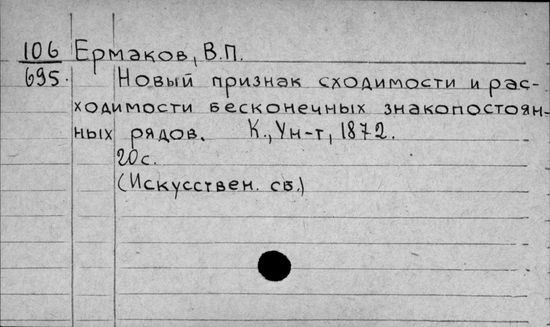 106 Ермаков, В.П.
695. Новый признак сходимости и рас-
ходимости бесконечных знакопостоян-
ных рядов. К., Ун-т, 1872.
20 с.
(Искусствен. св.)